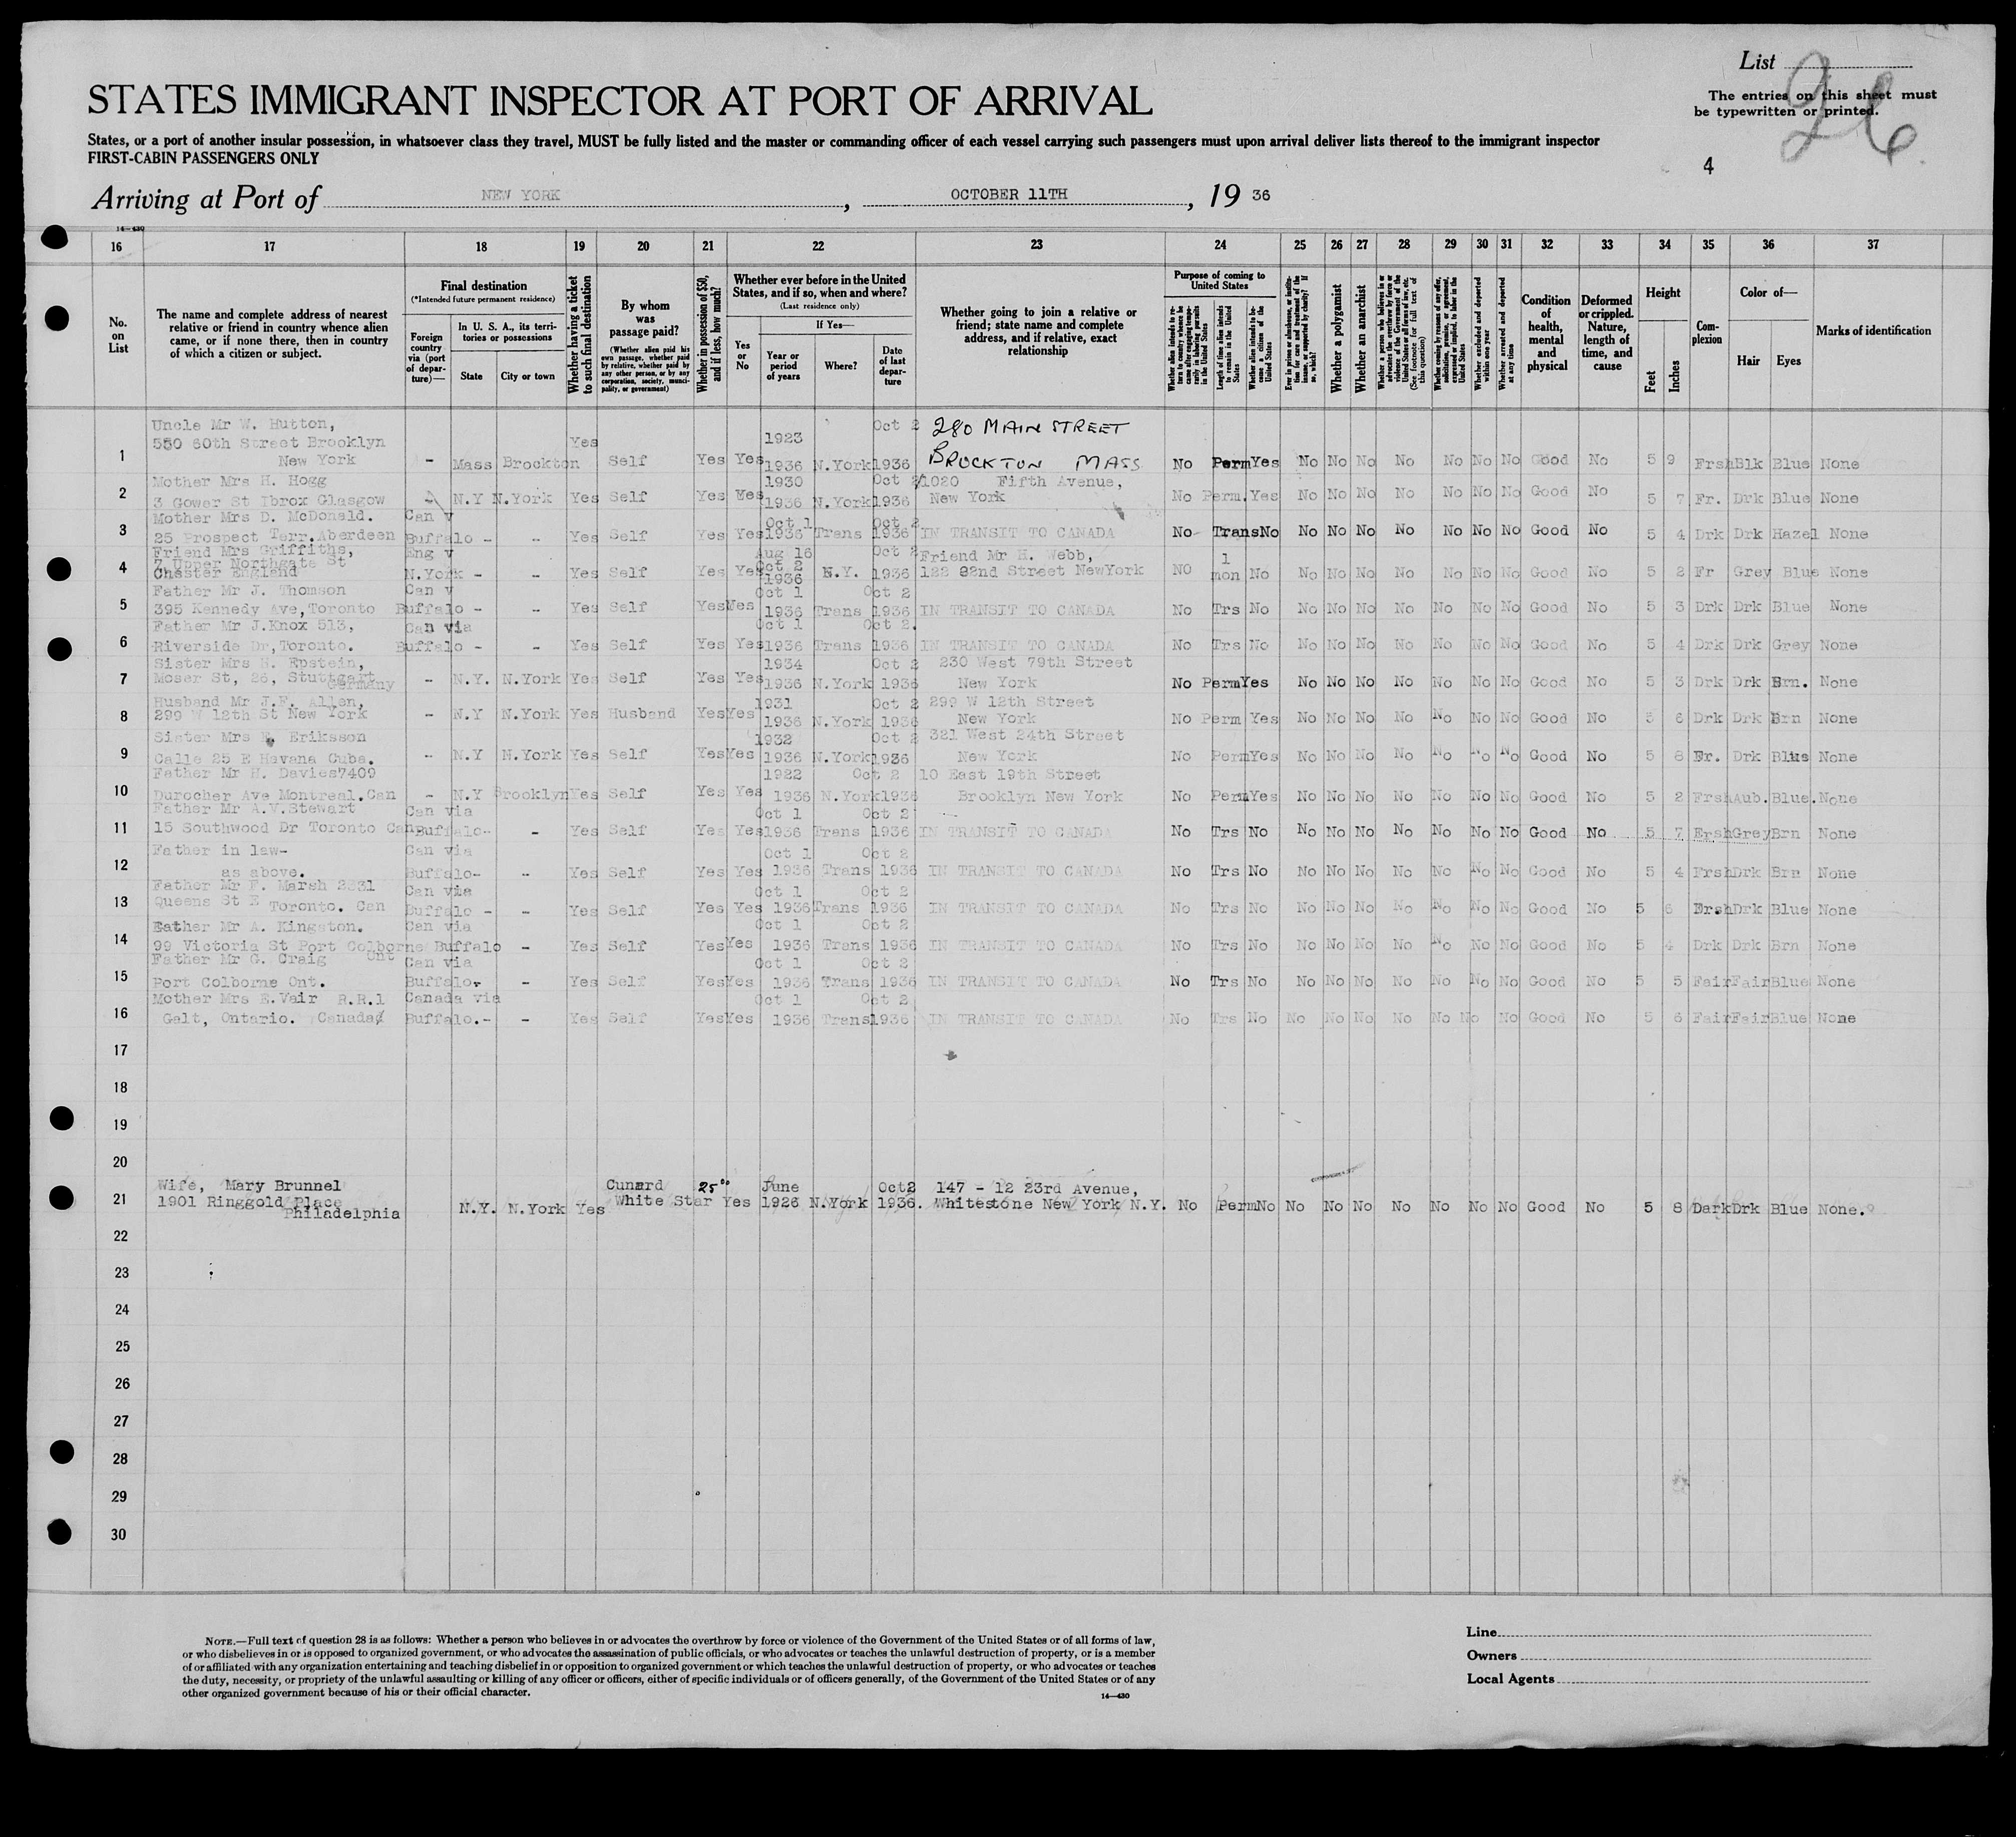 List
26
The entries on this sheet must
be typewritten or printed.
STATES IMMIGRANT INSPECTOR AT PORT OF ARRIVAL
States, or a port of another insular possession, in whatsoever class they travel, MUST be fully listed and the master or commanding officer of each vessel carrying such passengers must upon arrival deliver lists thereof to the immigrant inspector
FIRST-CABIN PASSENGERS ONLY
4
Arriving at Port of NEW YORK, OCTOBER 11TH, 19 36
14-430
16 17 18 19 20 21 22 23 24 25 26 27 28 29 30 31 32 33 34 35 36 37
No. on List
The name and complete address of nearest relative or friend in country whence alien came, or if none there, then in country of which a citizen or subject.
Final destination
(*Intended future permanent residence)
Foreign country via (port of departure)—
In U. S. A., its territories or possessions
State
City or town
Whether having a ticket to such final destination
By whom was passage paid?
(Whether alien paid his own passage, whether paid by relative, whether paid by any other person, or by any corporation, society, municipality, or government)
Whether in possession of $50, and if less, how much?
Whether ever before in the United States, and if so, when and where?
(Last residence only)
Yes or No
If Yes—
Year or period of years
Where?
Date of last departure
Whether going to join a relative or friend; state name and complete address, and if relative, exact relationship
Purpose of coming to United States
Whether alien intends to return to country whence he came after engaging temporarily in laboring pursuits in the United States
Length of time alien intends to remain in the United States
Whether alien intends to become a citizen of the United States
Ever in prison or almshouse, or institution for care and treatment of the insane, or supported by charity? If so, which?
Whether a polygamist
Whether an anarchist
Whether a person who believes in or advocates the overthrow by force or violence of the Government of the United States or all forms of law, etc. (See footnote for full text of this question)
Whether coming by reasons of any offer, solicitation, promise, or agreement, expressed or implied, to labor in the United States
Whether excluded and deported within one year
Whether arrested and deported at any time
Condition of health, mental and physical
Deformed or crippled. Nature, length of time, and cause
Height
Feet
Inches
Complexion
Color of—
Hair
Eyes
Marks of identification
Uncle Mr W. Hutton, Oct 2 280 MAIN STREET
550 60th Street Brooklyn Yes 1923
1 New York - Mass Brockton Self Yes Yes 1936 N.York 1936 BROCKTON MASS No Perm Yes No No No No No No No Good No 5 9 Frsh Blk Blue None
Mother Mrs H. Hogg 1930 Oct 2 1020 Fifth Avenue,
2 3 Gower St Ibrox Glasgow - N.Y N.York Yes Self Yes Yes 1936 N.York 1936 New York No Perm. Yes No No No No No No No Good No 5 7 Fr. Drk Blue None
Mother Mrs D. McDonald. Can v Oct 1 Oct 2
3 25 Prospect Terr. Aberdeen Buffalo - - Yes Self Yes Yes 1936 Trans 1936 IN TRANSIT TO CANADA No Trans No No No No No No No No Good No 5 4 Drk Drk Hazel None
Friend Mrs Griffiths, Eng v Aug 16 Oct 2 Friend Mr H. Webb,
7 Upper Northgate St Oct 2 1
4 Chester England N.York - - Yes Self Yes Yes 1936 N.Y. 1936 122 82nd Street NewYork NO mon No No No No No No No No Good No 5 2 Fr Grey Blue None
Father Mr J. Thomson Can v Oct 1 Oct 2
5 395 Kennedy Ave, Toronto Buffalo - - Yes Self Yes Yes 1936 Trans 1936 IN TRANSIT TO CANADA No Trs No No No No No No No No Good No 5 3 Drk Drk Blue None
Father Mr J.Knox 513, Can via Oct 1 Oct 2.
6 Riverside Dr, Toronto. Buffalo - - Yes Self Yes Yes 1936 Trans 1936 IN TRANSIT TO CANADA No Trs No No No No No No No No Good No 5 4 Drk Drk Grey None
Sister Mrs H. Epstein, 1934 Oct 2 230 West 79th Street
7 Moser St, 26, Stuttgart Germany - N.Y. N.York Yes Self Yes Yes 1936 N.York 1936 New York No Perm Yes No No No No No No No Good No 5 3 Drk Drk Brn. None
Husband Mr J.F. Allen, 1931 Oct 2 299 W 12th Street
8 299 W 12th St New York - N.Y N.York Yes Husband Yes Yes 1936 N.York 1936 New York No Perm Yes No No No No No No No Good No 5 6 Drk Drk Brn None
Sister Mrs Eriksson 1932 Oct 2 321 West 24th Street
9 Calle 25 E Havana Cuba. - N.Y N.York Yes Self Yes Yes 1936 N.York 1936 New York No Perm Yes No No No No No No No Good No 5 8 Fr. Drk None
Father Mr H. Davies 7409 1922 Oct 2 10 East 19th Street
10 Durocher Ave Montreal. Can - N.Y Brooklyn Yes Self Yes Yes 1936 N.York 1936 Brooklyn New York No Perm Yes No No No No No No No Good No 5 2 Frsh Aub. Blue. None
Father Mr A.V.Stewart Can via Oct 1 Oct 2
11 15 Southwood Dr Toronto Can Buffalo- - Yes Self Yes Yes 1936 Trans 1936 IN TRANSIT TO CANADA No Trs No No No No No No No No Good No 5 7 Frsh Grey Brn None
Father in law- Can via Oct 1 Oct 2
12 as above. Buffalo- - Yes Self Yes Yes 1936 Trans 1936 IN TRANSIT TO CANADA No Trs No No No No No No No No Good No 5 4 Frsh Drk Brn None
Father Mr F. Marsh 2331 Can via Oct 1 Oct 2
13 Queens St E Toronto. Can Buffalo - - Yes Self Yes Yes 1936 Trans 1936 IN TRANSIT TO CANADA No Trs No No No No No No No No Good No 5 6 Frsh Drk Blue None
Father Mr A. Kingston. Can via Oct 1 Oct 2
14 99 Victoria St Port Colborne Ont Buffalo - Yes Self Yes Yes 1936 Trans 1936 IN TRANSIT TO CANADA No Trs No No No No No No No No Good No 5 4 Drk Drk Brn None
Father Mr G. Craig Can via Oct 1 Oct 2
15 Port Colborne Ont. Buffalo. - Yes Self Yes Yes 1936 Trans 1936 IN TRANSIT TO CANADA No Trs No No No No No No No No Good No 5 5 Fair Fair Blue None
Mother Mrs E.Vair R.R.1 Canada via Oct 1 Oct 2
16 Galt, Ontario. Canada Buffalo.- - Yes Self Yes Yes 1936 Trans 1936 IN TRANSIT TO CANADA No Trs No No No No No No No No Good No 5 6 Fair Fair Blue None
17
18
19
20
Wife, Mary Brunnel Cunard 25 00 June Oct2 147 - 12 23rd Avenue,
21 1901 Ringgold Place Philadelphia N.Y. N.York Yes White Star Yes 1926 N.York 1936. Whitestone New York N.Y. No Perm No No No No No No No No Good No 5 8 Dark Drk Blue None.
22
23
24
25
26
27
28
29
30
NOTE.—Full text of question 28 is as follows: Whether a person who believes in or advocates the overthrow by force or violence of the Government of the United States or of all forms of law,
or who disbelieves in or is opposed to organized government, or who advocates the assassination of public officials, or who advocates or teaches the unlawful destruction of property, or is a member
of or affiliated with any organization entertaining and teaching disbelief in or opposition to organized government or which teaches the unlawful destruction of property, or who advocates or teaches
the duty, necessity, or propriety of the unlawful assaulting or killing of any officer or officers, either of specific individuals or of officers generally, of the Government of the United States or of any
other organized government because of his or their official character.
14—430
Line
Owners
Local Agents